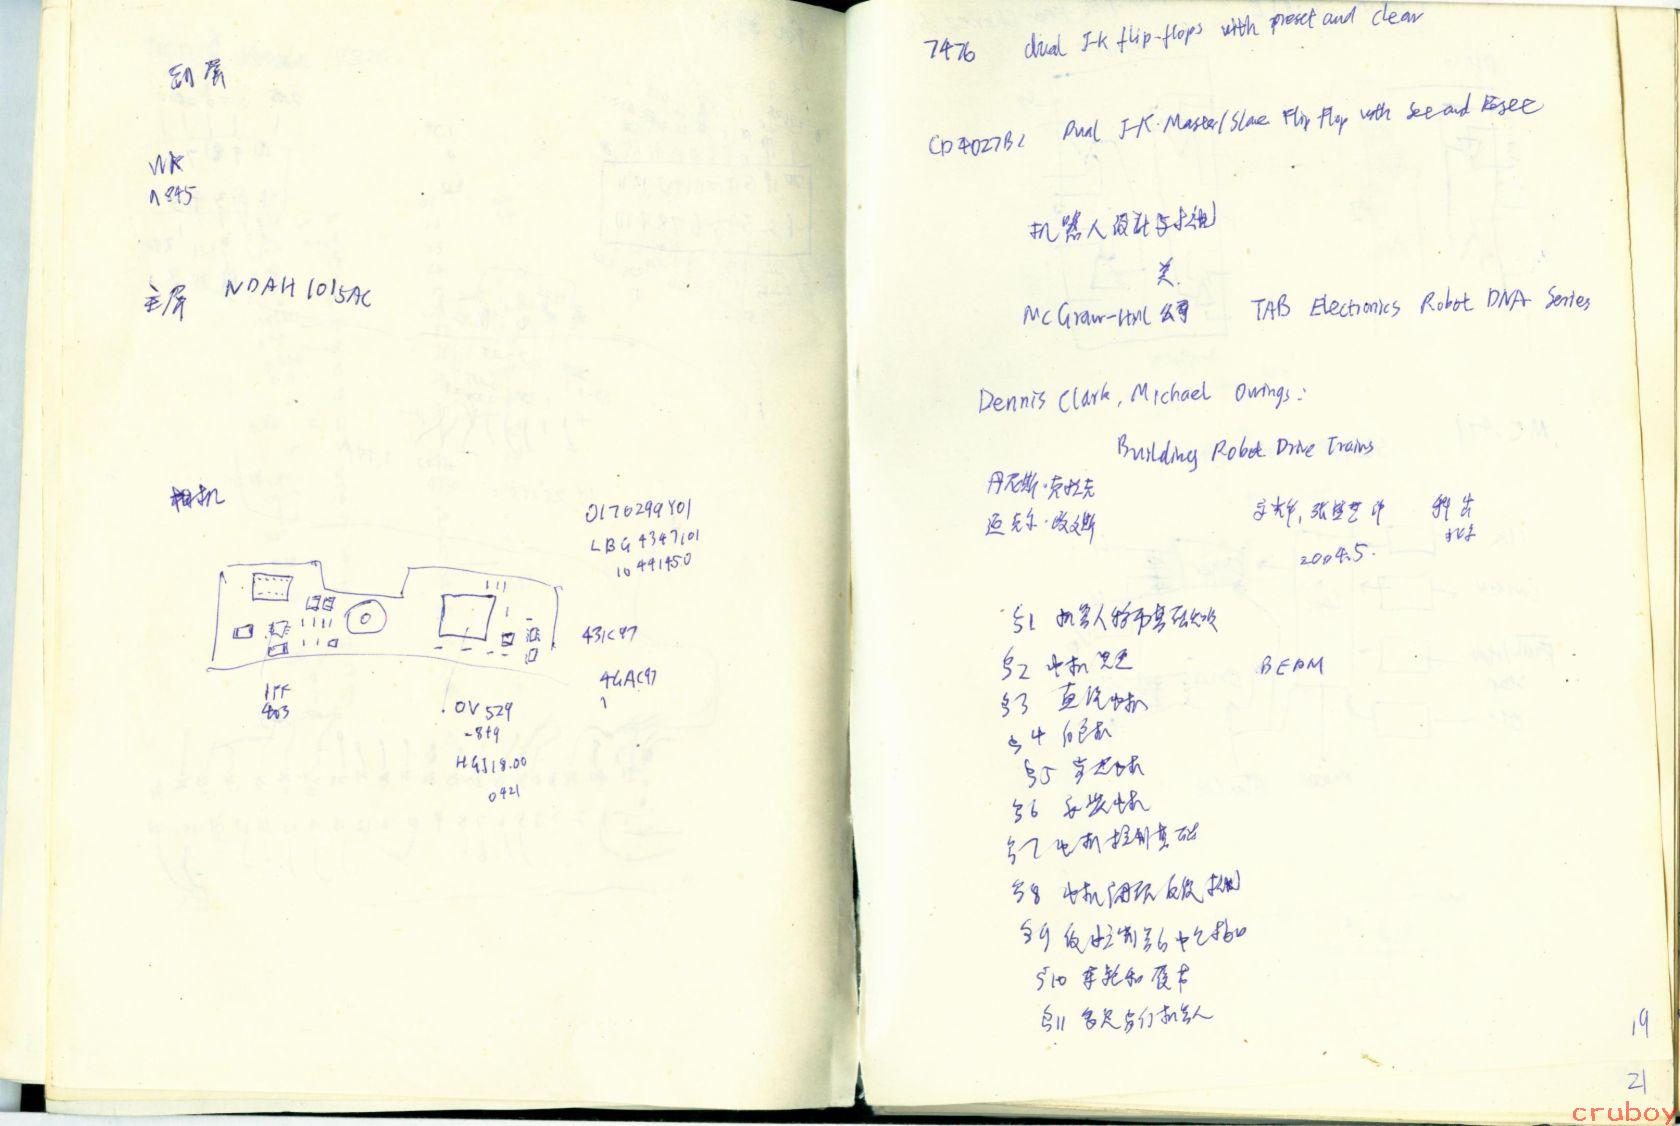 WK
主屏 NDAH1015AC
相机
0170299Y01
LBG4347101
10441450
431C97
4GAC97
OV529
HGJ18.00
0421
7476 dual J-K flip-flops with preset and clear
Dual J-K Master/Slave Flip Flop with Set and Reset
机器人设计与控制
美
McGraw-Hill 公司 TAB Electronics Robot DNA Series
Dennis Clark, Michael Owings:
Building Robot Drive Trains
丹尼斯·克拉克
迈克尔·欧文斯
2004.5.
§1 机器人
§2 电机 BEAM
§3 直流电机
§4
§5 步进电机
§6 安装电机
§7 电机控制基础
§8 电机闭环反馈控制
§9
§10 车轮和履带
§11 多足步行机器人
19
21
cruboy